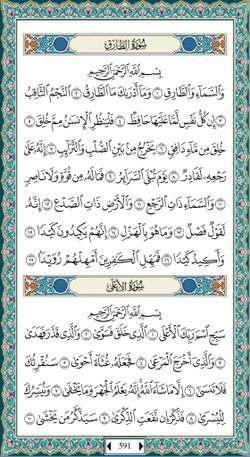 سُورَةُ الطَّارِقِ
بِسْمِ اللَّهِ الرَّحْمَٰنِ الرَّحِيمِ
وَالسَّمَاءِ وَالطَّارِقِ ١ وَمَا أَدْرَاكَ مَا الطَّارِقُ ٢ النَّجْمُ الثَّاقِبُ
٣ إِن كُلُّ نَفْسٍ لَّمَّا عَلَيْهَا حَافِظٌ ٤ فَلْيَنظُرِ الْإِنسَٰنُ مِمَّ خُلِقَ ٥
خُلِقَ مِن مَّاءٍ دَافِقٍ ٦ يَخْرُجُ مِن بَيْنِ الصُّلْبِ وَالتَّرَائِبِ ٧ إِنَّهُ عَلَىٰ
رَجْعِهِ لَقَادِرٌ ٨ يَوْمَ تُبْلَى السَّرَائِرُ ٩ فَمَا لَهُ مِن قُوَّةٍ وَلَا نَاصِرٍ
١٠ وَالسَّمَاءِ ذَاتِ الرَّجْعِ ١١ وَالْأَرْضِ ذَاتِ الصَّدْعِ ١٢ إِنَّهُ
لَقَوْلٌ فَصْلٌ ١٣ وَمَا هُوَ بِالْهَزْلِ ١٤ إِنَّهُمْ يَكِيدُونَ كَيْدًا ١٥
وَأَكِيدُ كَيْدًا ١٦ فَمَهِّلِ الْكَٰفِرِينَ أَمْهِلْهُمْ رُوَيْدًا ١٧
سُورَةُ الأَعْلَىٰ
بِسْمِ اللَّهِ الرَّحْمَٰنِ الرَّحِيمِ
سَبِّحِ اسْمَ رَبِّكَ الْأَعْلَى ١ الَّذِي خَلَقَ فَسَوَّىٰ ٢ وَالَّذِي قَدَّرَ فَهَدَىٰ
٣ وَالَّذِي أَخْرَجَ الْمَرْعَىٰ ٤ فَجَعَلَهُ غُثَاءً أَحْوَىٰ ٥ سَنُقْرِئُكَ
فَلَا تَنسَىٰ ٦ إِلَّا مَا شَاءَ اللَّهُ إِنَّهُ يَعْلَمُ الْجَهْرَ وَمَا يَخْفَىٰ ٧ وَنُيَسِّرُكَ
لِلْيُسْرَىٰ ٨ فَذَكِّرْ إِن نَّفَعَتِ الذِّكْرَىٰ ٩ سَيَذَّكَّرُ مَن يَخْشَىٰ ١٠
591